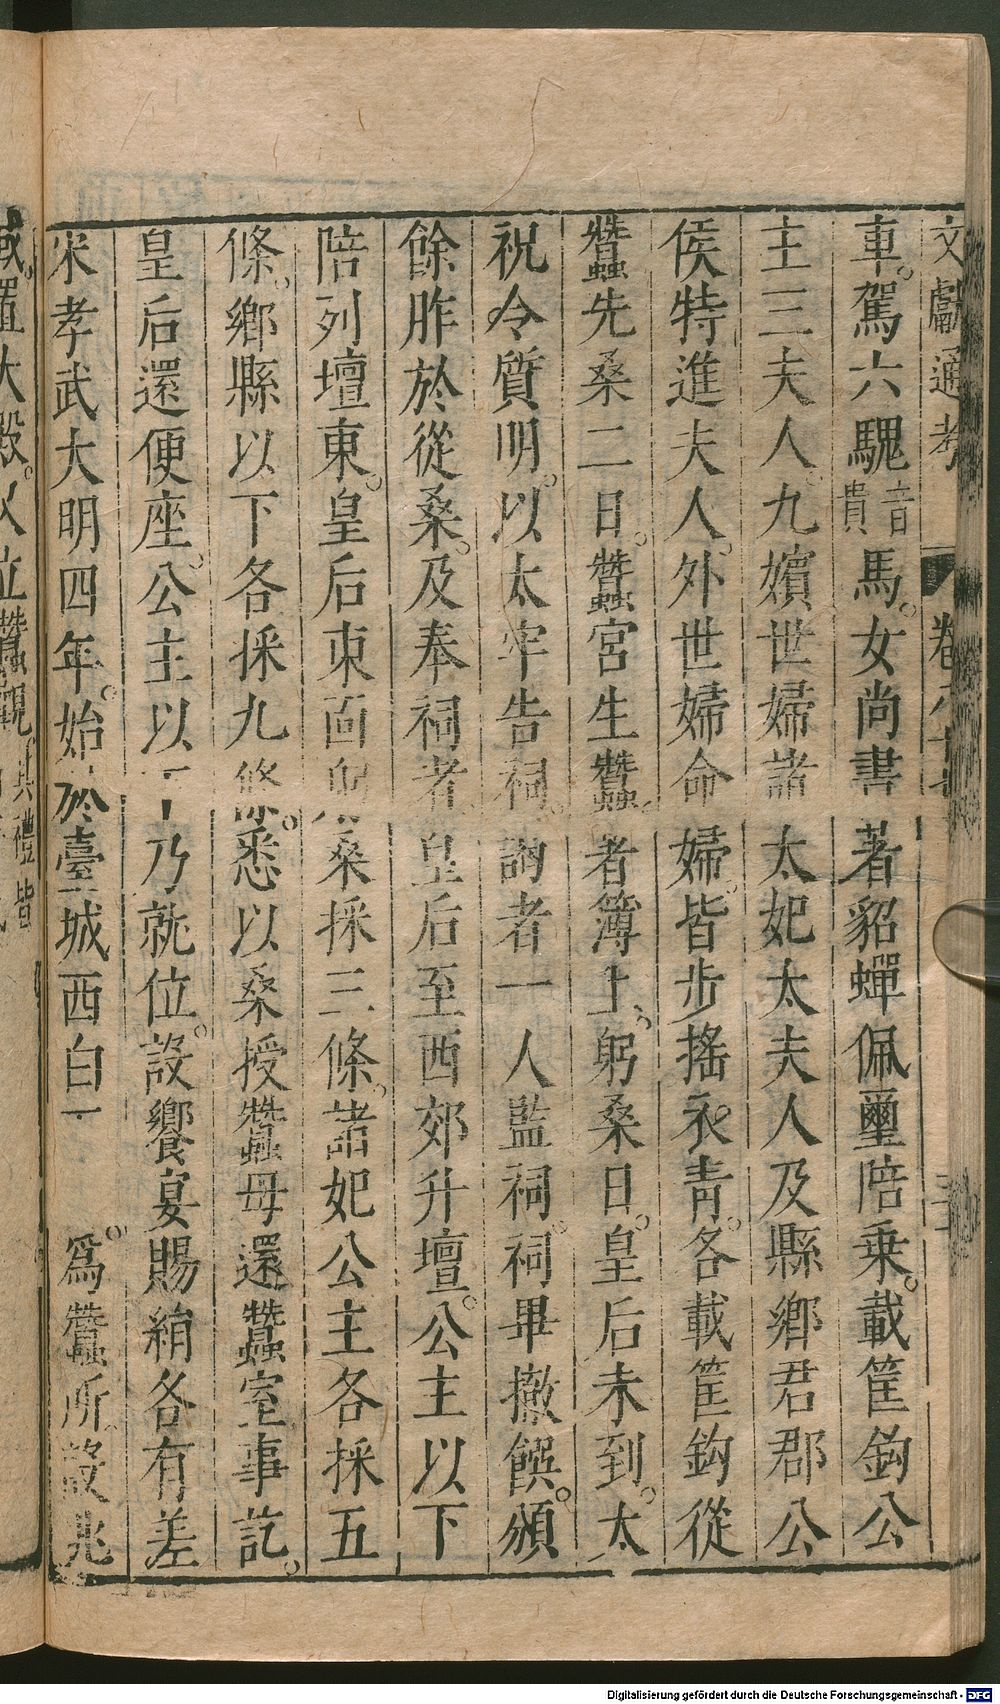 文獻通考 卷八十七
車。駕六騩音貴馬。女尚書著貂蟬佩璽陪乗。載筐鉤公
主三夫人。九嬪世婦諸太妃太夫人及縣鄉君郡公
侯特進夫人。外世婦命婦。皆步搖衣青。各載筐鉤從
蠶先桑二日。蠶宮生蠶者簿上。躬桑日。皇后未到。太
祝令質明。以太牢告祠。謁者一人監祠。祠畢撤饌。頒
餘胙於從桑。及奉祠者皇后至西郊升壇。公主以下
陪列壇東。皇后東面躬桑採三條。諸妃公主各採五
條。鄉縣以下各採九條。悉以桑授蠶母還蠶室事訖。
皇后還便座。公主以下乃就位。設饗宴賜絹各有差
宋孝武大明四年。始於臺城西白 。爲蠶所設兆
域。置大殿。又立蠶觀
其禮皆
Digitalisierung gefördert durch die Deutsche Forschungsgemeinschaft - DFG